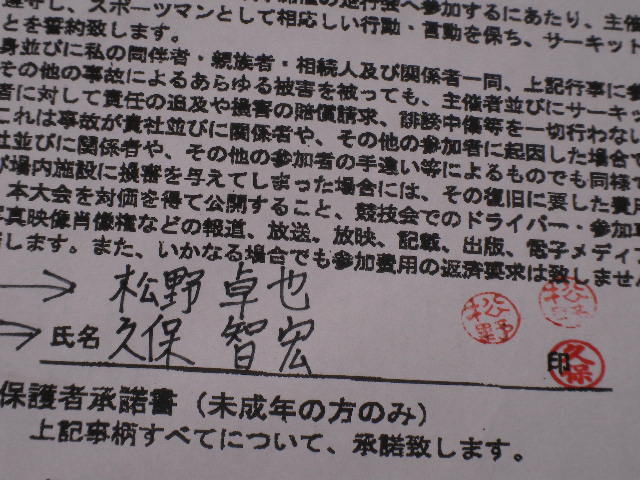 遵守し、スポーツマンとして相応しい行動・言動を保ち、サーキット
とを誓約致します。
身並びに私の同伴者・親族者・相続人及び関係者一同、上記行事に参
その他の事故によるあらゆる被害を被っても、主催者並びにサーキッ
者に対して責任の追及や損害の賠償請求、誹謗中傷等を一切行わない
これは事故が貴社並びに関係者や、その他の参加者に起因した場合で
社並びに関係者や、その他の参加者の手違い等によるものでも同様で
び場内施設に損害を与えてしまった場合には、その復旧に要した費用
本大会を対価を得て公開すること、競技会でのドライバー・参加車
写真映像肖像権などの報道、放送、放映、記載、出版、電子メディア
します。また、いかなる場合でも参加費用の返済要求は致しません
→ 松野 卓也 松野 松野
→ 氏名 久保 智宏 印 久保
保護者承諾書（未成年の方のみ）
上記事柄すべてについて、承諾致します。